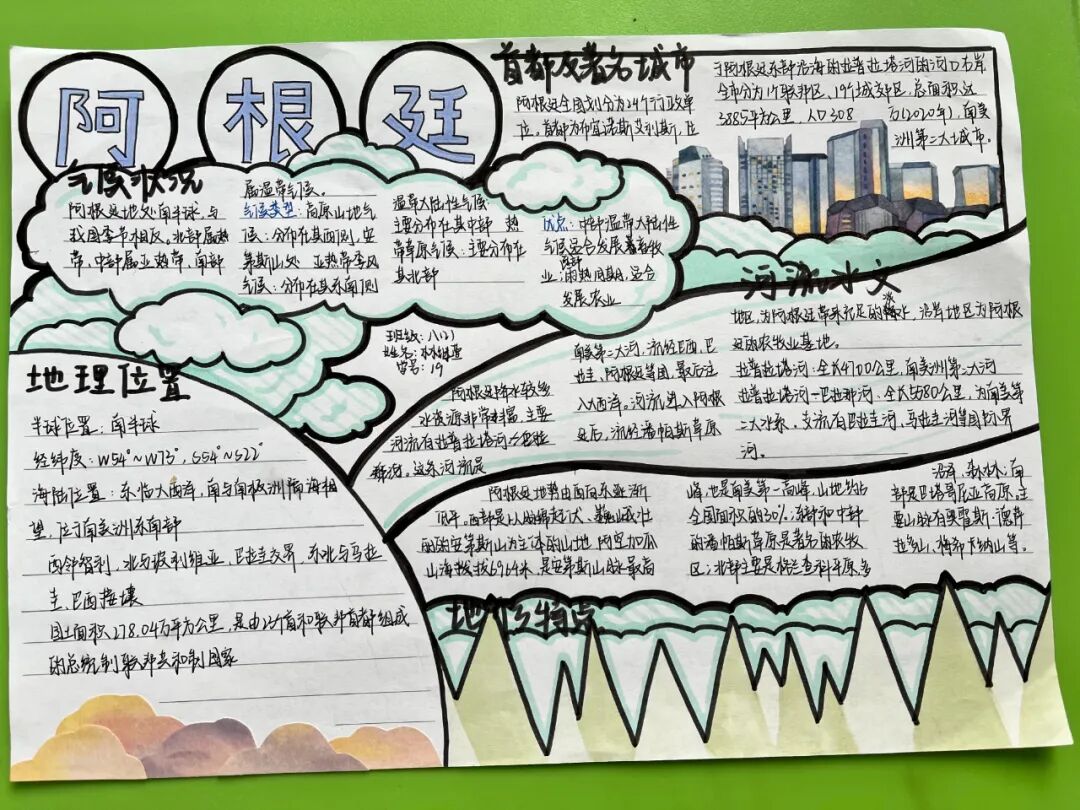 阿根廷
首都及著名城市
阿根廷全国划分为24个行政单
位。首都为布宜诺斯艾利斯，位
于阿根廷东部沿海的拉普拉塔河的河口右岸
全市分为1个联邦区，19个城郊区，总面积达
3885平方公里，人口308万(2020年)，南美
洲第二大城市。
气候状况
阿根廷地处南半球，与
我国季节相反。北部属热
带，中部属亚热带，南部
属温带气候。
气候类型：高原山地气
候：分布在其西侧，安
第斯山处 亚热带季风
气候：分布在其东南侧
温带大陆性气候
主要分布在其中部 热
带草原气候：主要分布在
其北部
优点：中部温带大陆性
气候适合发展畜牧
业；西部雨热同期，适合
发展农业
班级：八(2)
姓名：
学号：19
地理位置
半球位置：南半球
经纬度：W54°~W73°，S54°~S22°
海陆位置：东临大西洋，南与南极洲隔海相
望，位于南美洲东南部
西邻智利，北与玻利维亚、巴拉圭交界，东北与乌拉
圭、巴西接壤
国土面积278.04万平方公里，是由24省和联邦首都组成
的总统制联邦共和制国家
河流水文
阿根廷降水较多
水资源非常丰富，主要
河流有拉普拉塔河
南美第二大河，流经巴西、巴
拉圭、阿根廷等国，最后注
入大西洋。河流进入阿根
廷后，流经潘帕斯草原
地区，为阿根廷带来充足的淡水，沿岸地区为阿根
廷的农牧业基地。
拉普拉塔河：全长4700公里，南美洲第二大河
拉普拉塔河—巴拉那河：全长5580公里，为南美第
二大水系，支流有巴拉圭河，乌拉圭河等国际界
河。
阿根廷地势由西向东逐渐
低平。西部是以脉绵起伏、巍峨壮
丽的安第斯山为主体的山地 阿空加瓜
山海拔6964米，是安第斯山脉最高
峰，也是南美第一高峰，山地约占
全国面积的30%；东部和中部
的潘帕斯草原是著名的农牧
区；北部主要是格兰查科平原，多
沼泽、森林；南
部是巴塔哥尼亚高原，主
要山脉有奥霍斯·德萨
拉多山、梅希卡纳山等。
地形特点